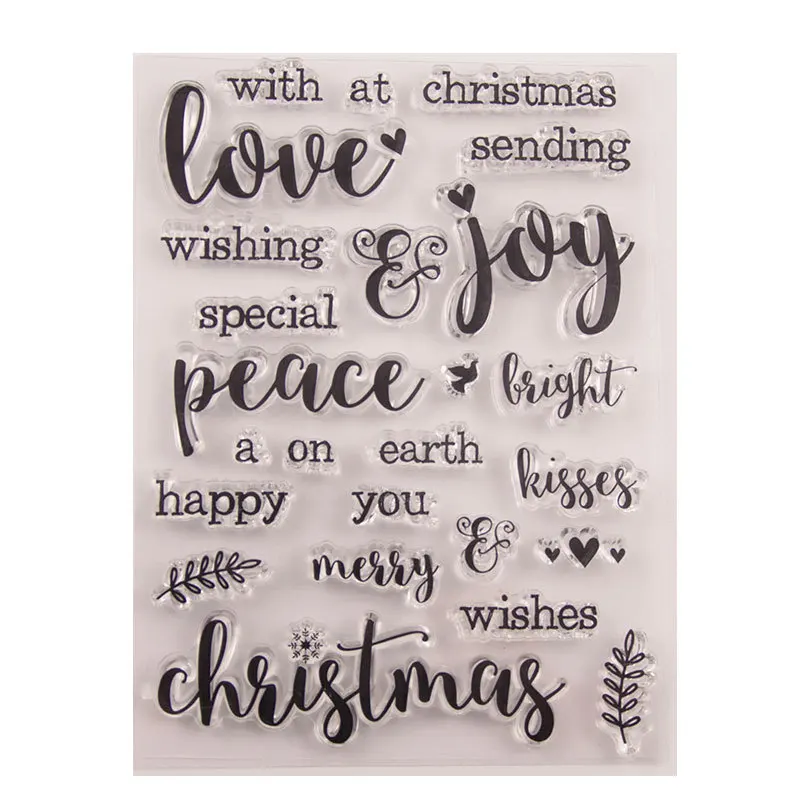 with at christmas
love sending
wishing & joy
special
peace bright
a on earth
kisses
happy you
&
merry
wishes
christmas